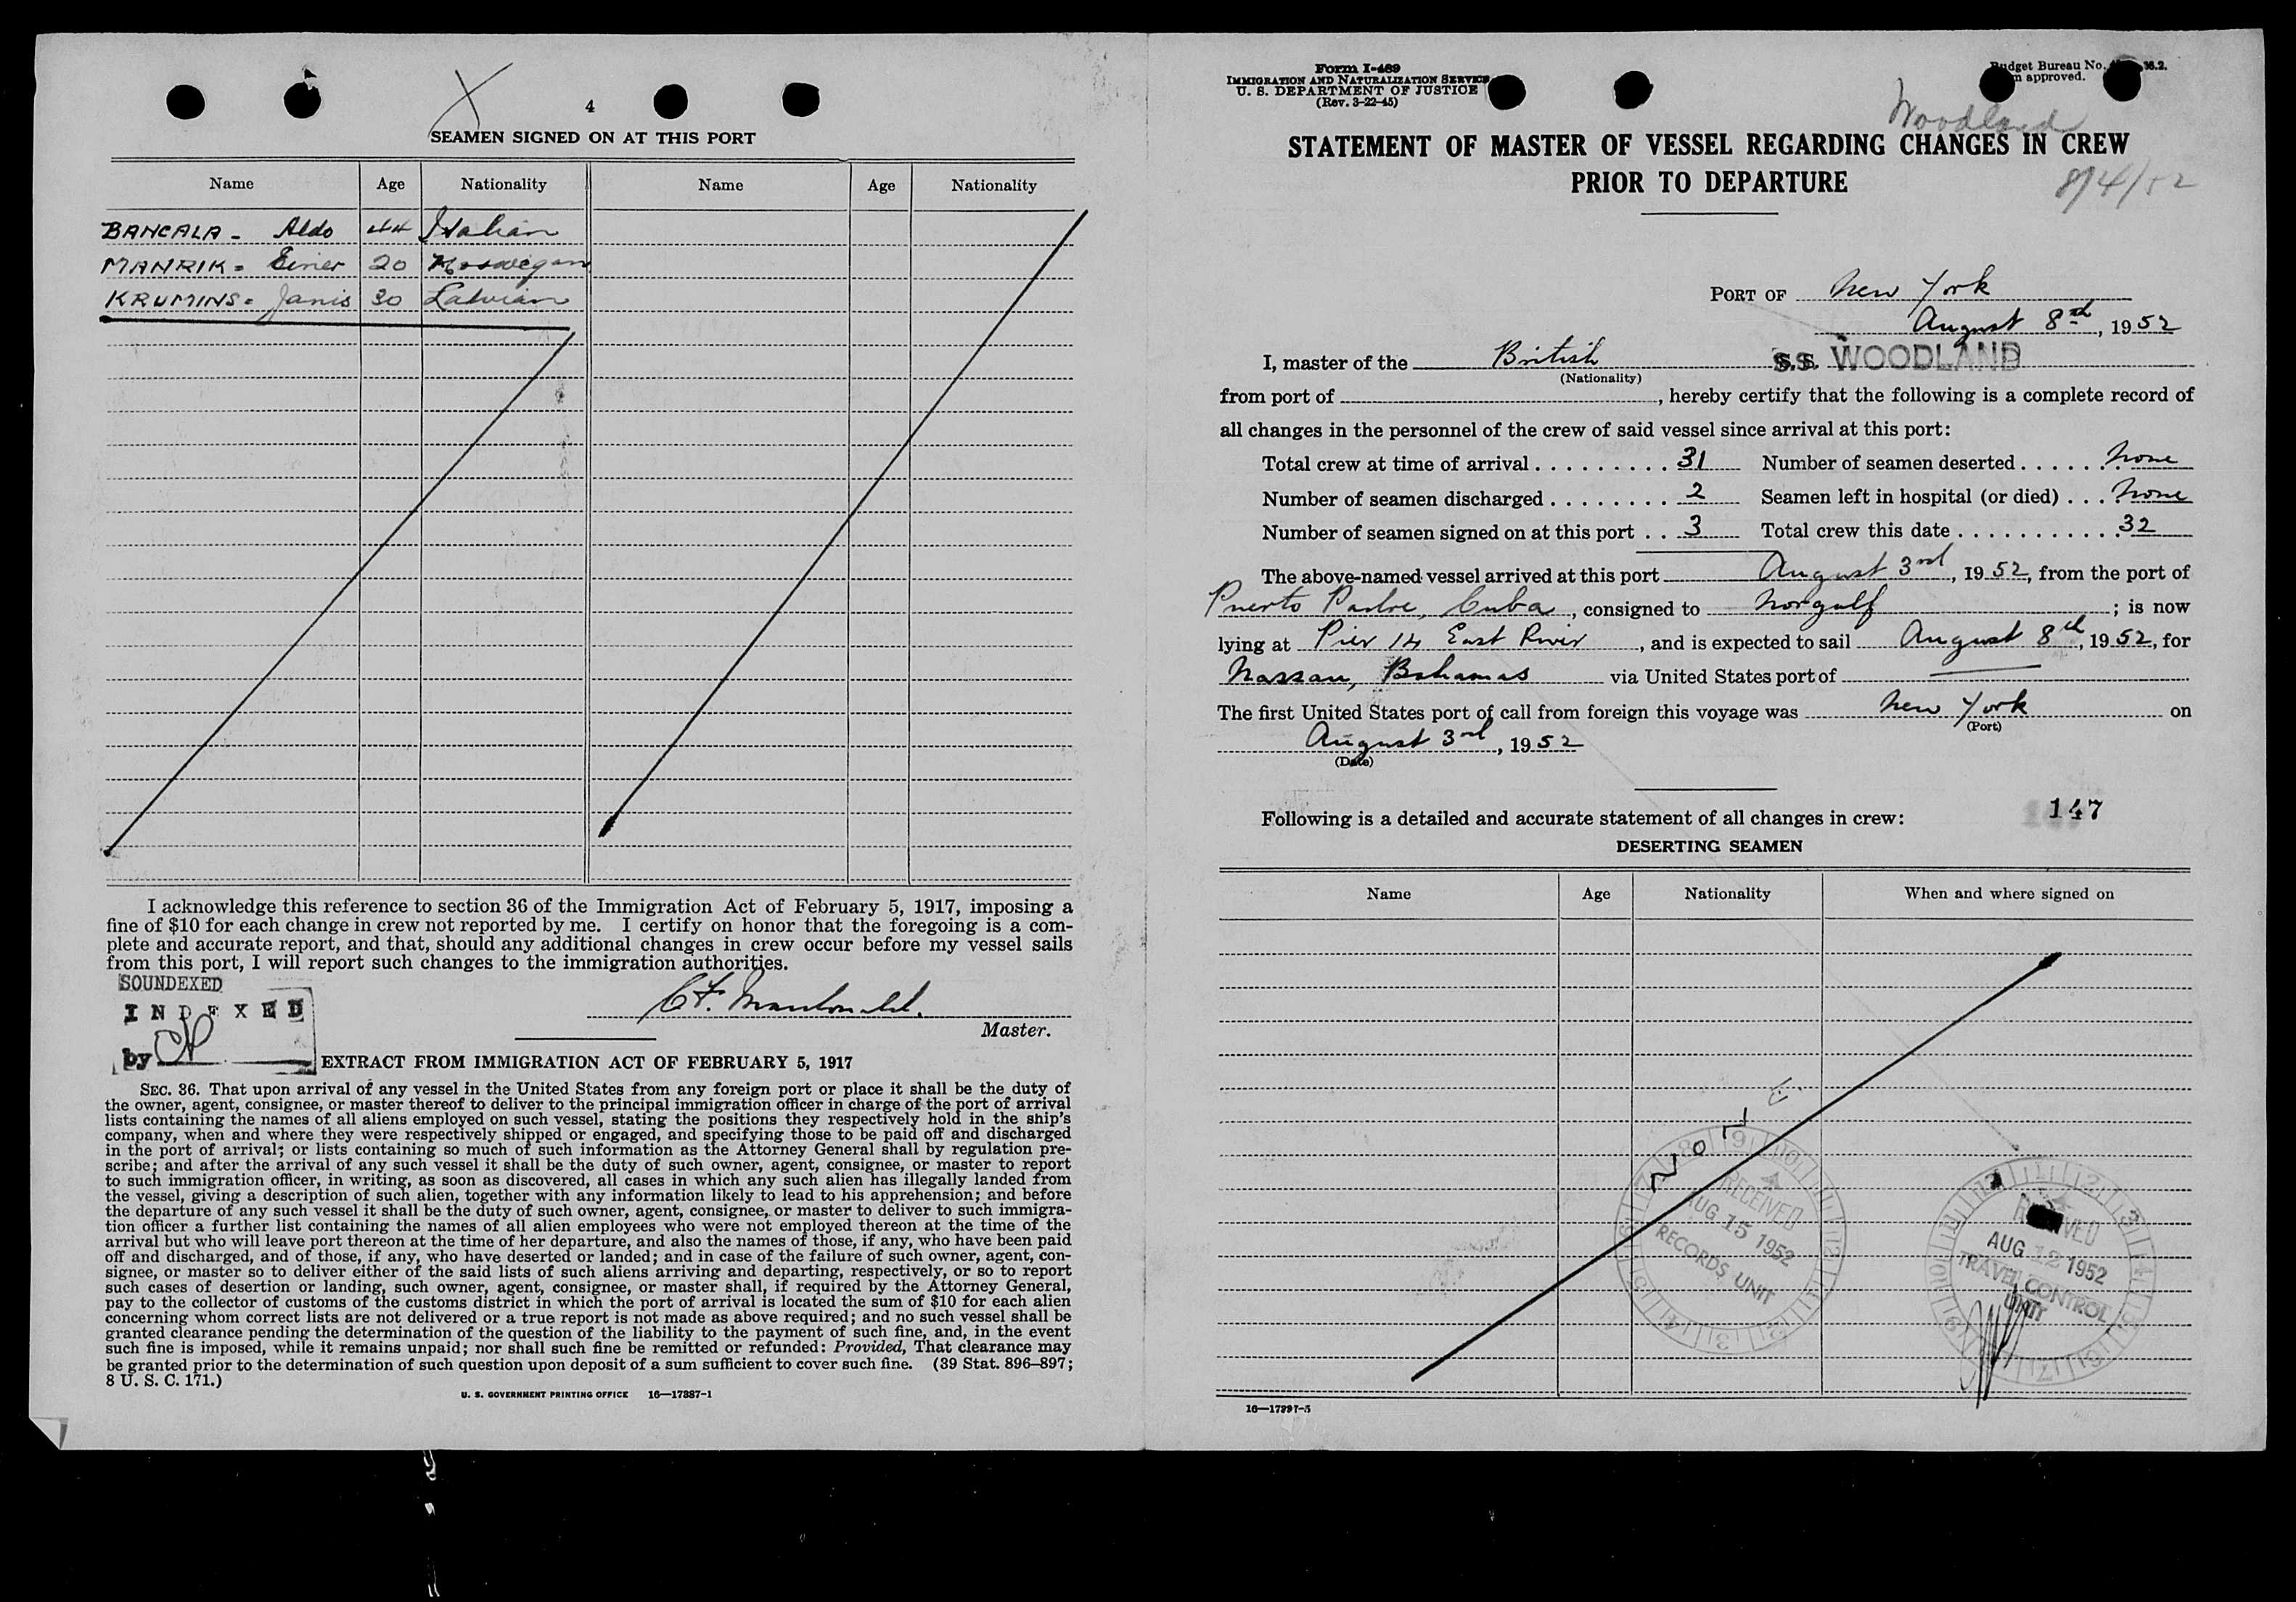 4
SEAMEN SIGNED ON AT THIS PORT
Name Age Nationality Name Age Nationality
BANCALA - Aldo 44 Italian
MANRIK - Einer 20 Norwegan
KRUMINS - Janis 30 Latvian
I acknowledge this reference to section 36 of the Immigration Act of February 5, 1917, imposing a
fine of $10 for each change in crew not reported by me. I certify on honor that the foregoing is a com-
plete and accurate report, and that, should any additional changes in crew occur before my vessel sails
from this port, I will report such changes to the immigration authorities.
SOUNDEXED
INDEXED
by
Master.
EXTRACT FROM IMMIGRATION ACT OF FEBRUARY 5, 1917
SEC. 36. That upon arrival of any vessel in the United States from any foreign port or place it shall be the duty of
the owner, agent, consignee, or master thereof to deliver to the principal immigration officer in charge of the port of arrival
lists containing the names of all aliens employed on such vessel, stating the positions they respectively hold in the ship's
company, when and where they were respectively shipped or engaged, and specifying those to be paid off and discharged
in the port of arrival; or lists containing so much of such information as the Attorney General shall by regulation pre-
scribe; and after the arrival of any such vessel it shall be the duty of such owner, agent, consignee, or master to report
to such immigration officer, in writing, as soon as discovered, all cases in which any such alien has illegally landed from
the vessel, giving a description of such alien, together with any information likely to lead to his apprehension; and before
the departure of any such vessel it shall be the duty of such owner, agent, consignee, or master to deliver to such immigra-
tion officer a further list containing the names of all alien employees who were not employed thereon at the time of the
arrival but who will leave port thereon at the time of her departure, and also the names of those, if any, who have been paid
off and discharged, and of those, if any, who have deserted or landed; and in case of the failure of such owner, agent, con-
signee, or master so to deliver either of the said lists of such aliens arriving and departing, respectively, or so to report
such cases of desertion or landing, such owner, agent, consignee, or master shall, if required by the Attorney General,
pay to the collector of customs of the customs district in which the port of arrival is located the sum of $10 for each alien
concerning whom correct lists are not delivered or a true report is not made as above required; and no such vessel shall be
granted clearance pending the determination of the question of the liability to the payment of such fine, and, in the event
such fine is imposed, while it remains unpaid; nor shall such fine be remitted or refunded: Provided, That clearance may
be granted prior to the determination of such question upon deposit of a sum sufficient to cover such fine. (39 Stat. 896–897;
8 U. S. C. 171.)
U. S. GOVERNMENT PRINTING OFFICE 16—17887-1
Form I-489
IMMIGRATION AND NATURALIZATION SERVICE
U. S. DEPARTMENT OF JUSTICE
(Rev. 3-22-45)
Budget Bureau No.
approved.
Woodland
8/4/52
STATEMENT OF MASTER OF VESSEL REGARDING CHANGES IN CREW
PRIOR TO DEPARTURE
PORT OF New York
August 8th, 1952
I, master of the British S.S. WOODLAND
(Nationality)
from port of , hereby certify that the following is a complete record of
all changes in the personnel of the crew of said vessel since arrival at this port:
Total crew at time of arrival 31 Number of seamen deserted None
Number of seamen discharged 2 Seamen left in hospital (or died) None
Number of seamen signed on at this port 3 Total crew this date 32
The above-named vessel arrived at this port August 3rd, 1952, from the port of
Puerto Padre, Cuba, consigned to Norgulf; is now
lying at Pier 14 East River, and is expected to sail August 8th, 1952, for
Nassau, Bahamas via United States port of —
The first United States port of call from foreign this voyage was New York on
(Port)
August 3rd, 1952
(Date)
147
Following is a detailed and accurate statement of all changes in crew:
DESERTING SEAMEN
Name Age Nationality When and where signed on
NONE
RECEIVED
AUG 15 1952
RECORDS UNIT
RECEIVED
AUG 12 1952
TRAVEL CONTROL
UNIT